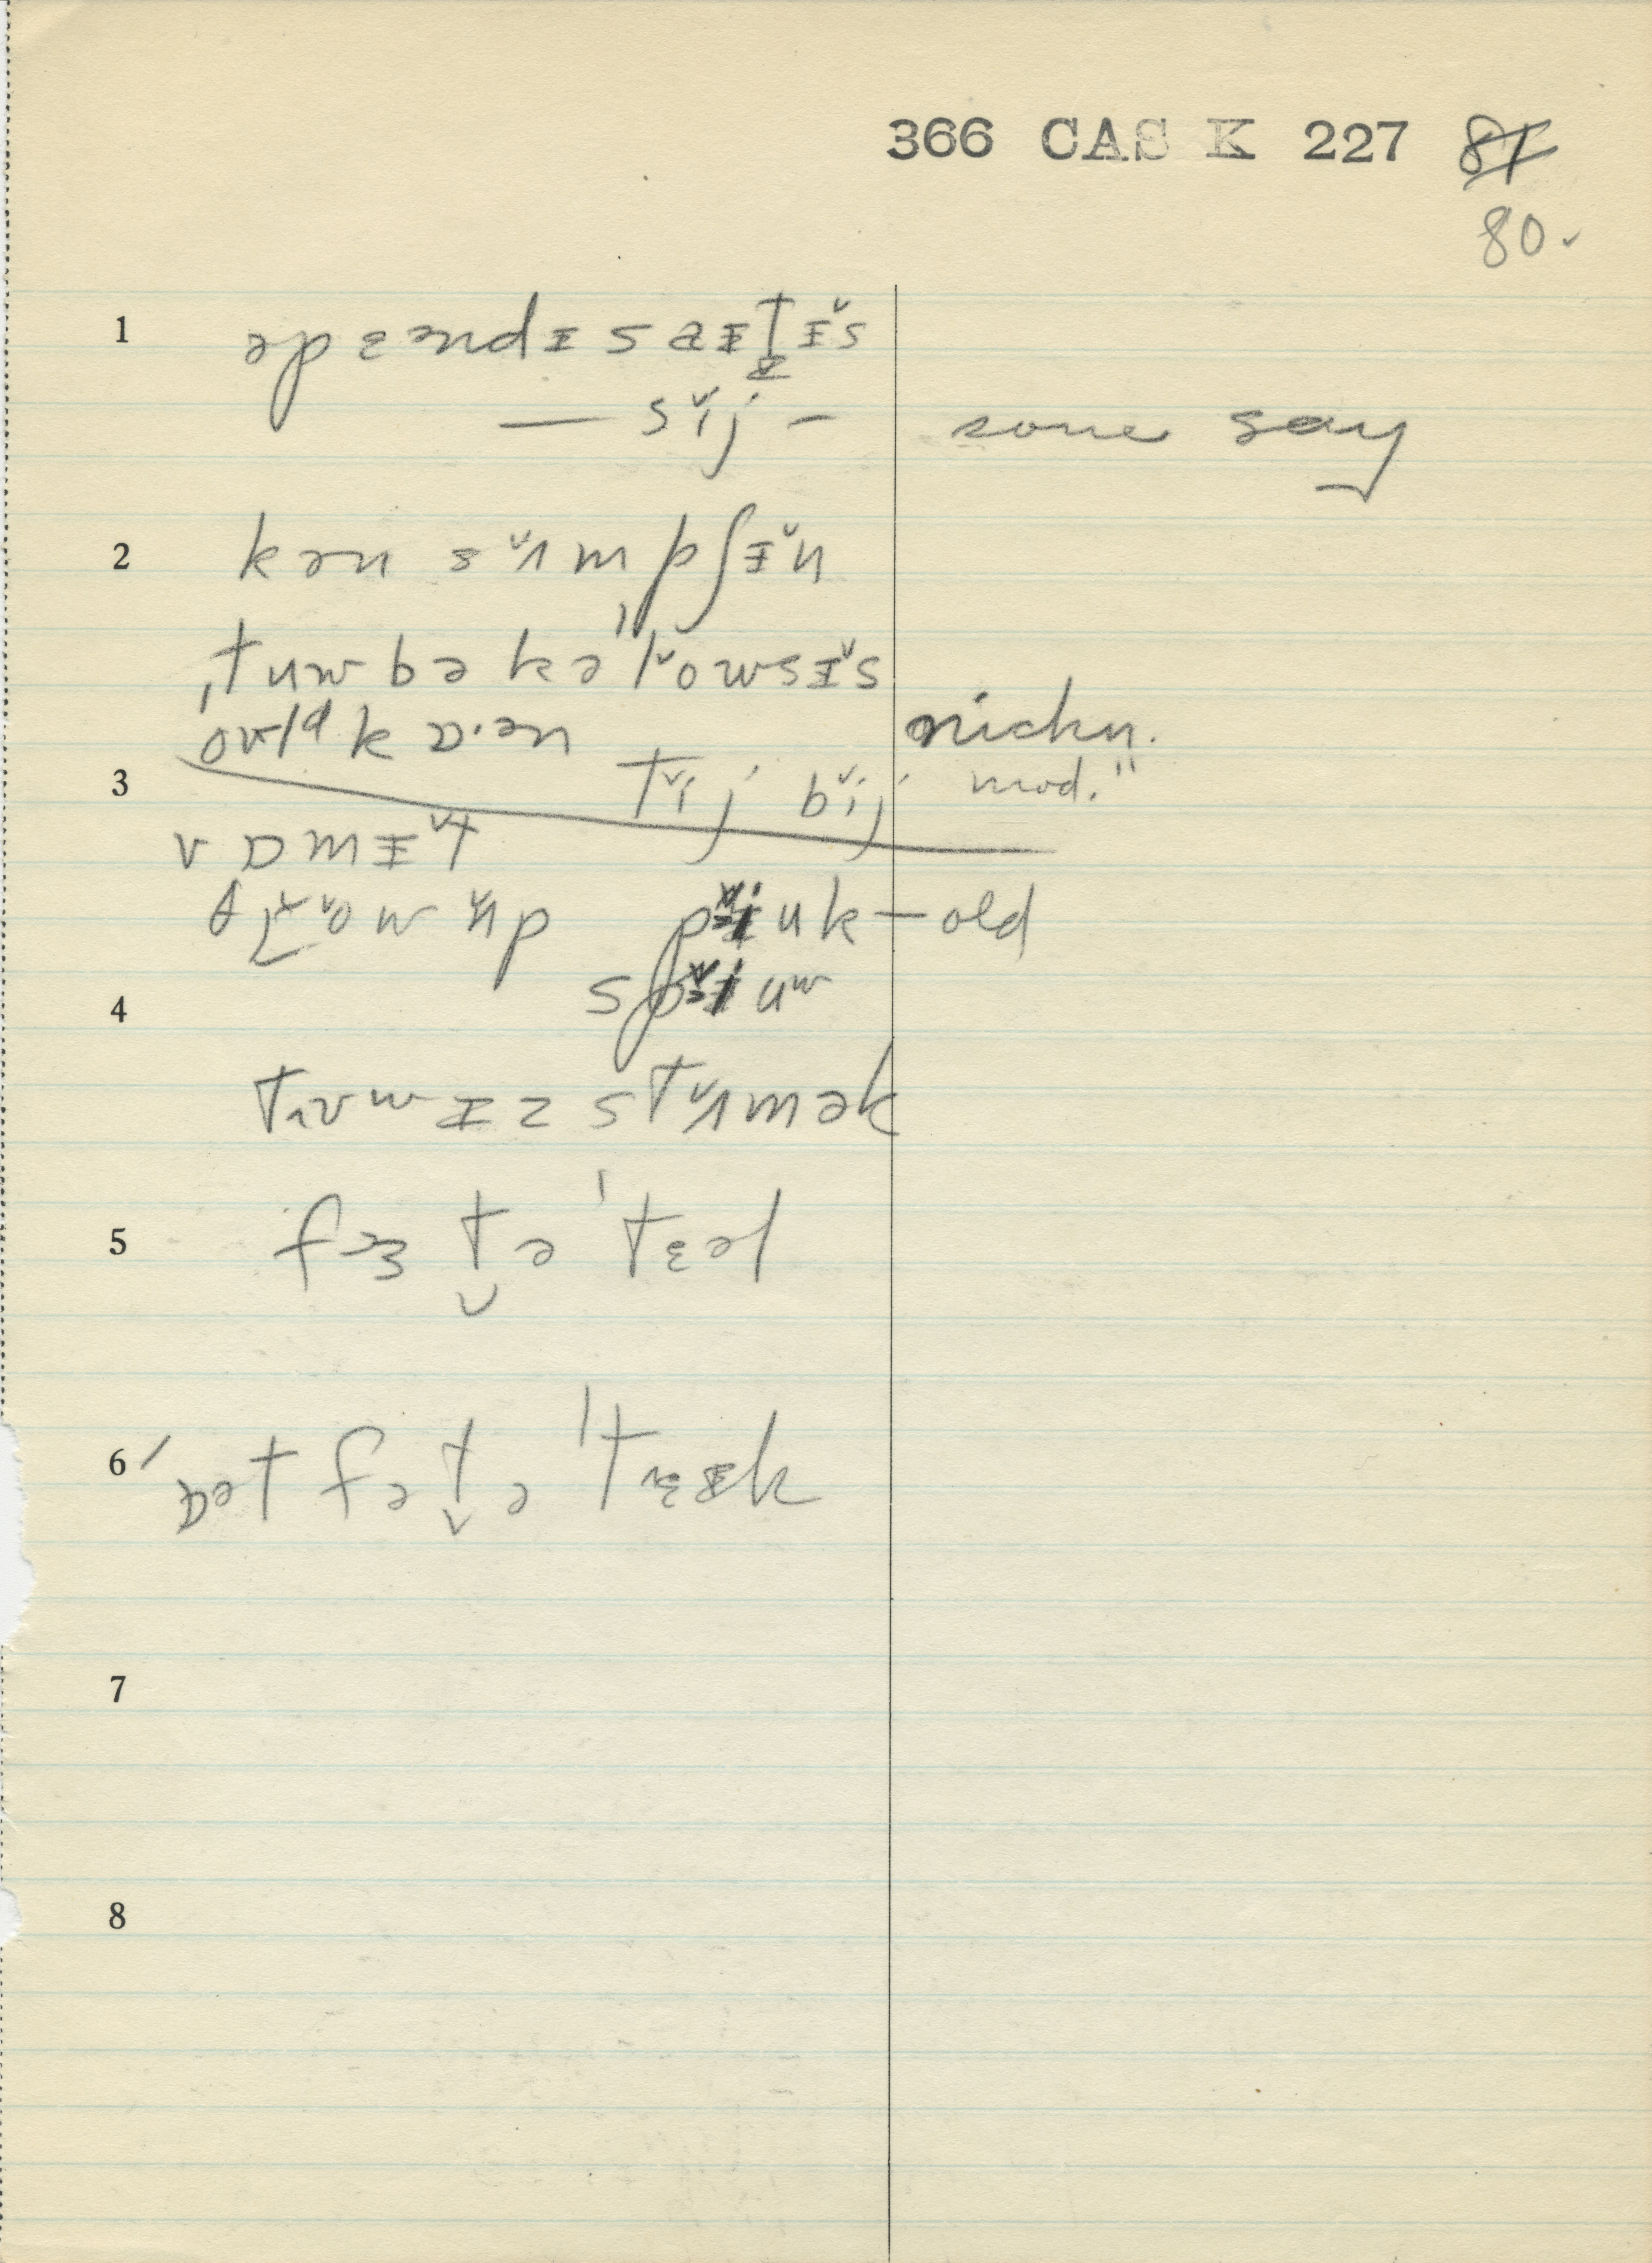 366 CAS K 227 87
80.
1 əpɛəndɪsaɪt̬ɪ̆s
— sĭj — some say
2 kən sʌ̆mpʃɪ̆n
ˌtuwbəkəˈlŏwsɪ̆s
owld kɒ·ən nickn.
3 tĭj bĭj mod. "
vɒmɪ̆t
θɹŏw ʌ̆p pĭuk — old
4 spĭuw
tuwɪz stʌ̆mək
5 fɜ t̬ə ˈtɛəl
6 ˈɒət fə t̬ə ˈtɛɪk
7
8